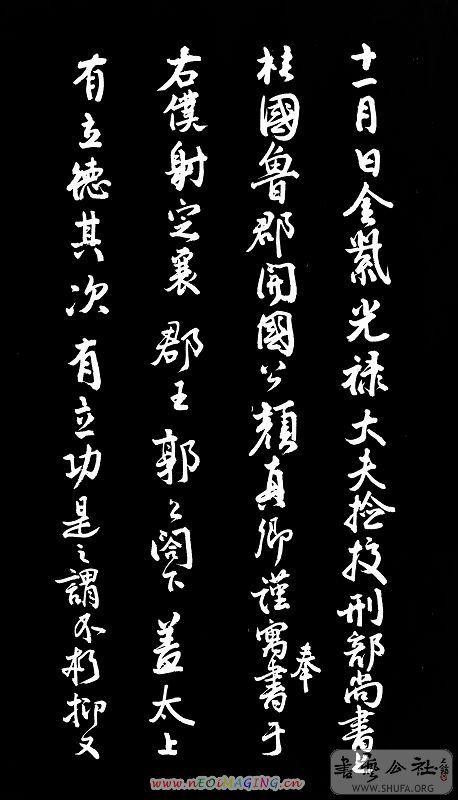 十一月日金紫光禄大夫捡挍刑部尚書上
柱國魯郡開國公顔真卿謹寓書于
奉
右僕射定襄郡王郭公閤下蓋太上
有立德其次有立功是之謂不朽抑又
書學公社
WWW.SHUFA.ORG
www.nEOiMAGING.cn